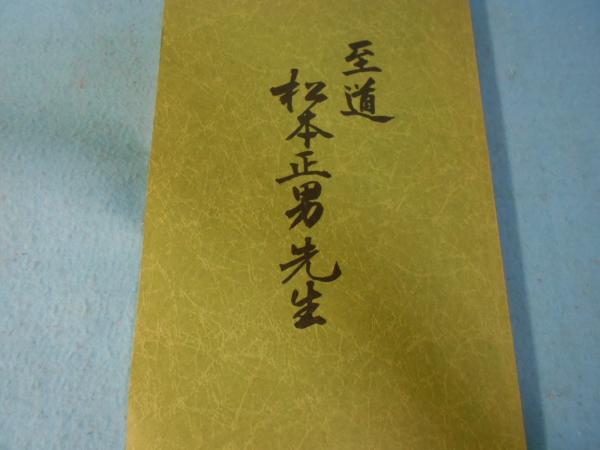 至道
松本正男先生